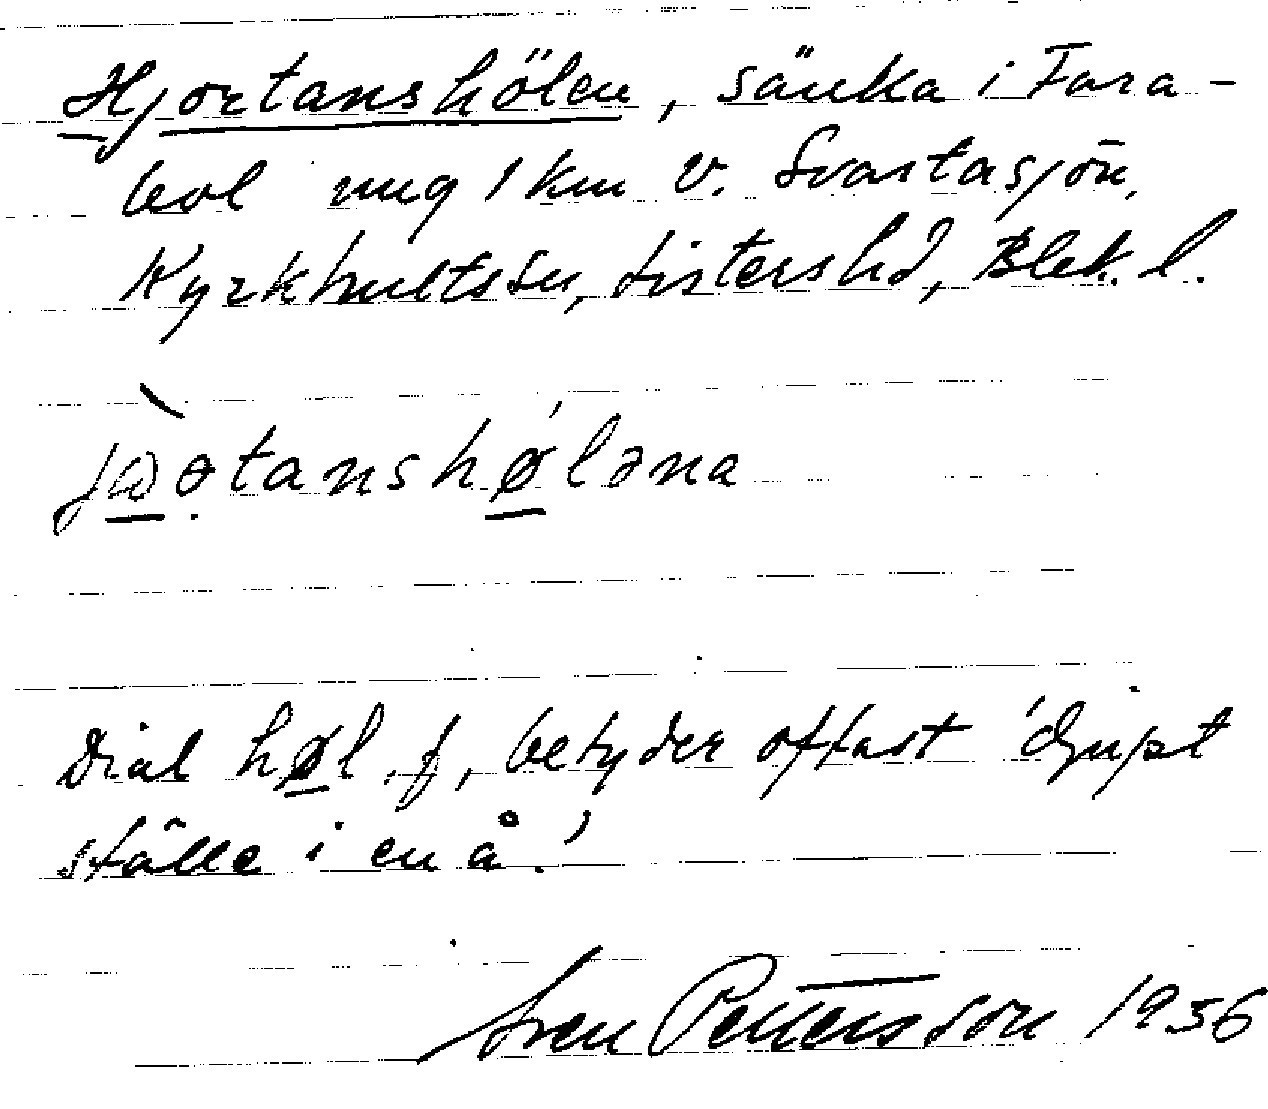 Hjortanshölen, sänka i Fara-
bol ung 1 km v. Svartasjön,
Kyrkhults sn, Listers hd, Blek. l.
hølǝna
Dial høl f, betyder oftast 'djupt
ställe i en å.'
Sven Pettersson 1936